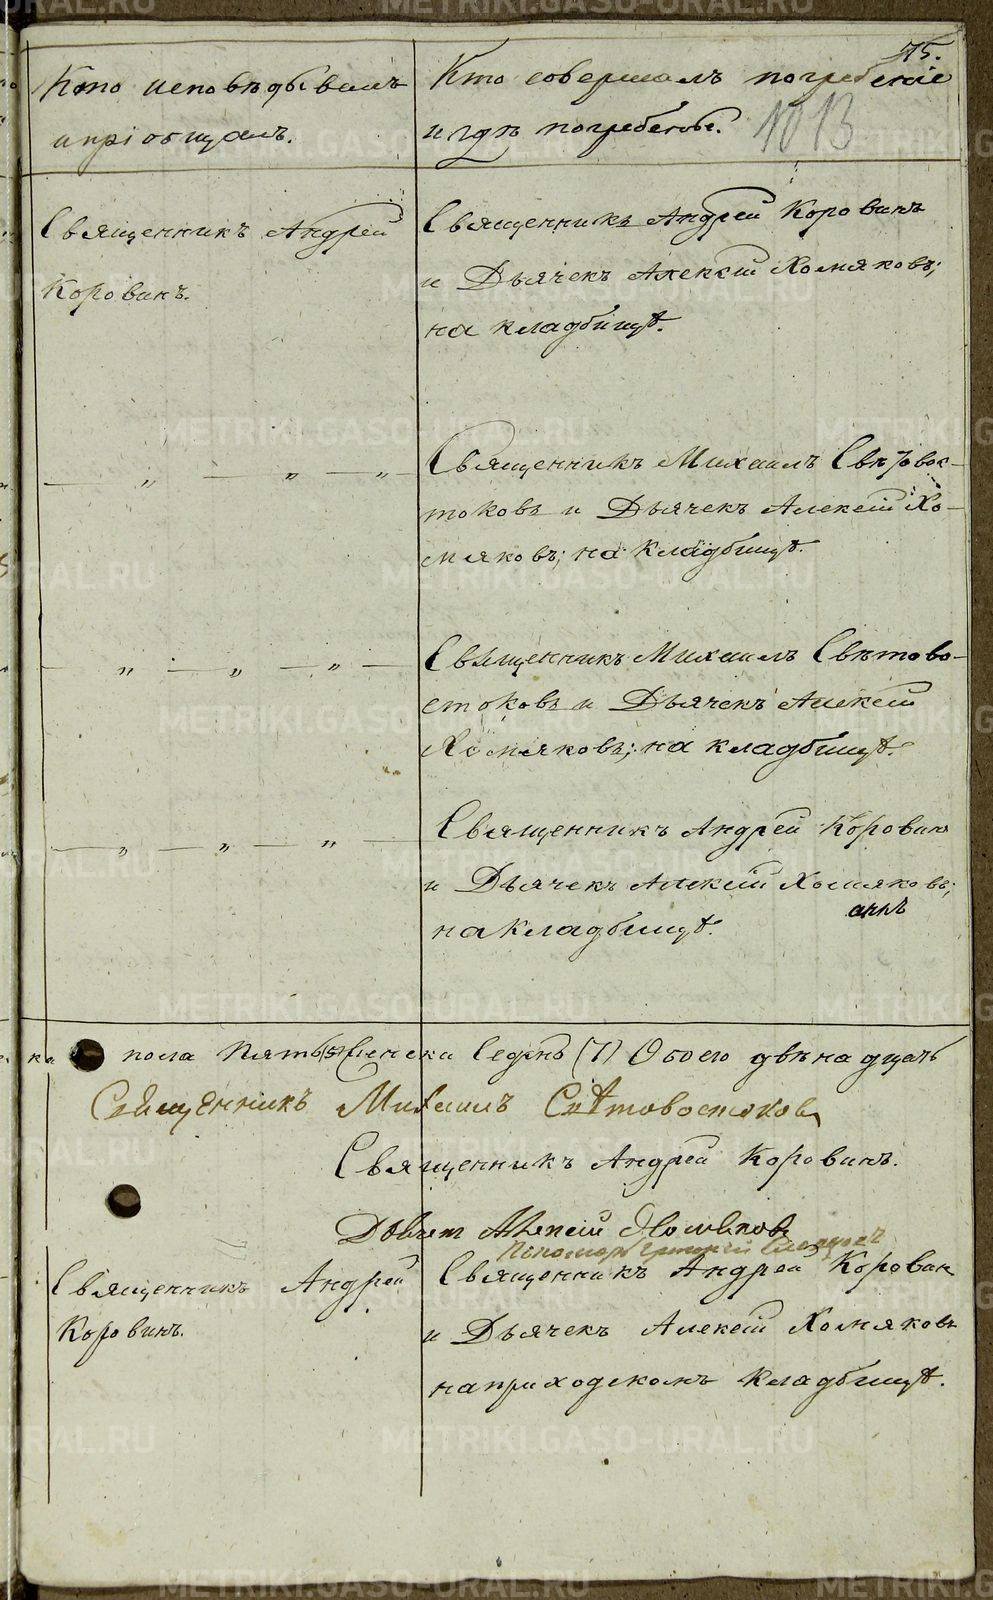 75.
Кто исповѣдывалъ
и пріобщалъ.
Кто совершалъ погребеніе
и гдѣ погребены.
1013
Священникъ Андрей
Коровинъ.
Священникъ Андрей Коровинъ
и Дьячекъ Алексѣй Хомяковъ;
на кладбищѣ.
— „ — „ — „ —
Священникъ Михаилъ Свѣтовос-
токовъ и Дьячекъ Алексѣй Хо-
мяковъ; на кладбищѣ.
— „ — „ — „ —
Священникъ Михаилъ Свѣтово-
стоковъ и Дьячекъ Алексѣй
Хомяковъ; на кладбищѣ.
— „ — „ — „ —
Священникъ Андрей Коровинъ
и Дьячекъ Алексѣй Хомяковъ;
на кладбищѣ.
ка пола Пять (5) Женска Седмь (7) Обоего двѣнадцать
Священникъ Михаилъ Свѣтовостоковъ
Священникъ Андрей Коровинъ.
Дьячекъ Алексѣй Хомяковъ
Пономарь
Священникъ Андрей
Коровинъ.
Священникъ Андрей Коровинъ
и Дьячекъ Алексѣй Хомяковъ
на приходскомъ кладбищѣ.
METRIKI.GASO-URAL.RU